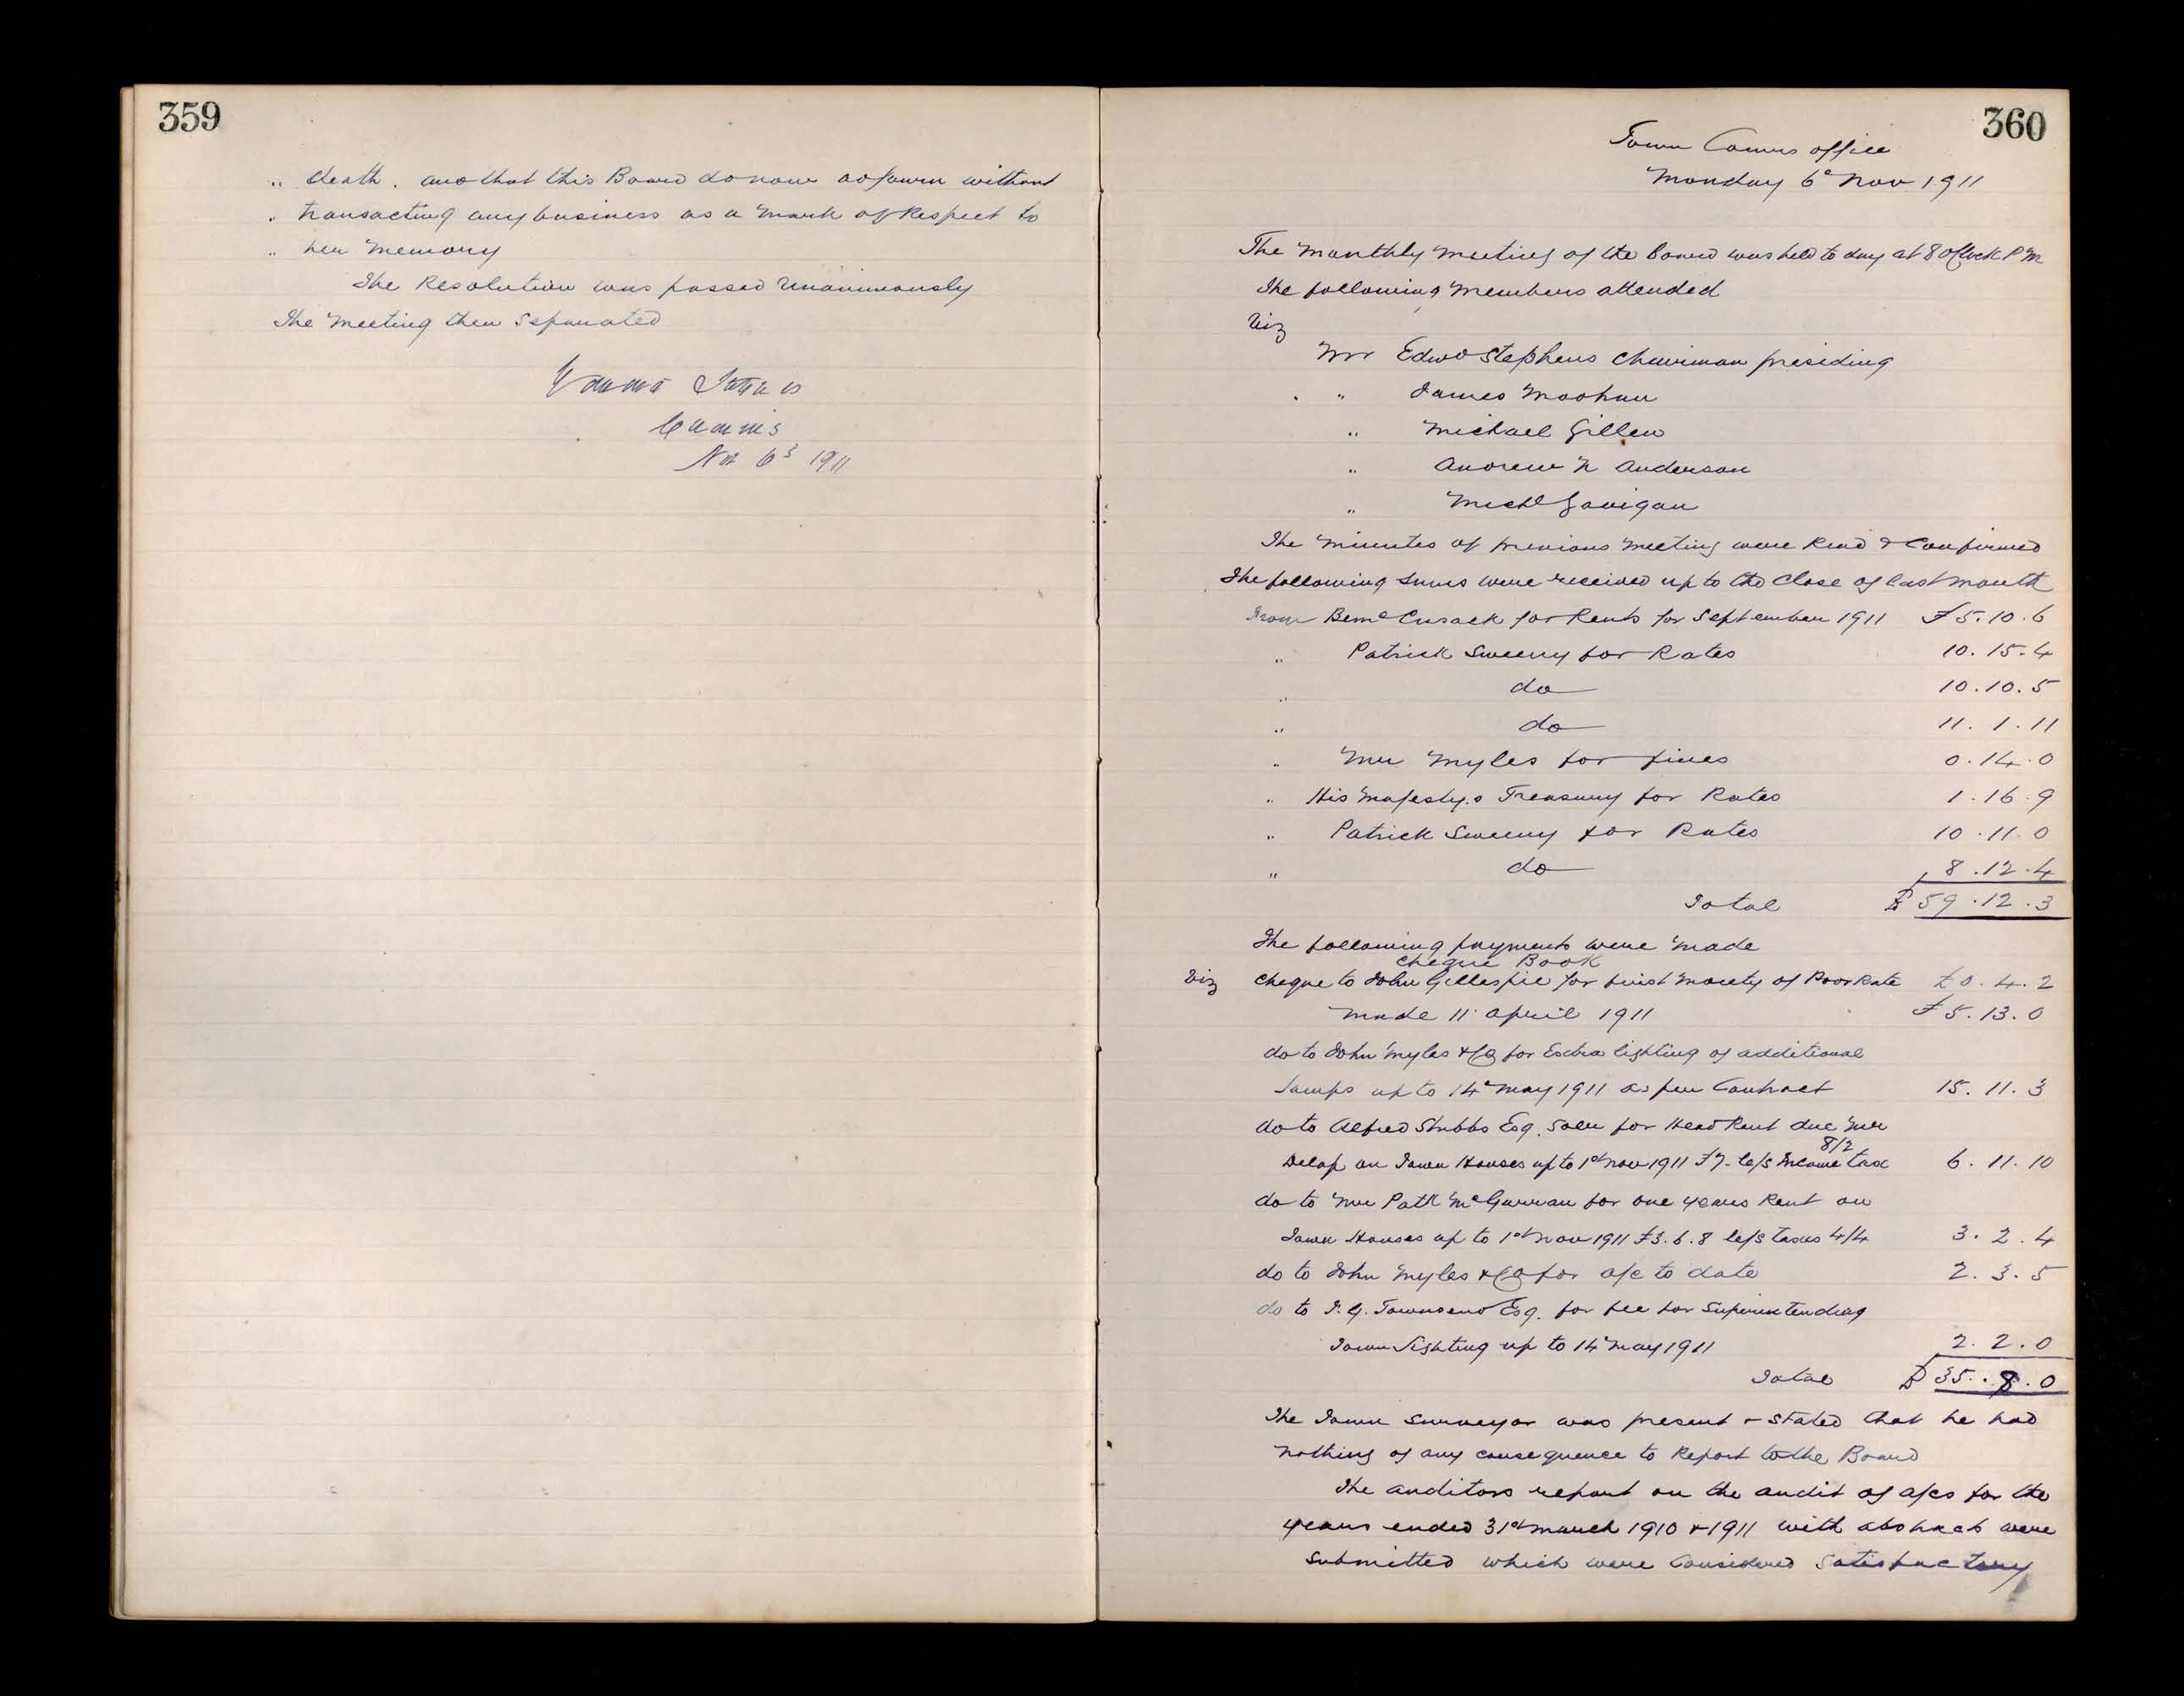 359
" death. and that this Board do now adjourn without
" transacting any business as a mark of Respect to
" her memory
The Resolution was passed unanimously
The meeting then separated
Edward Stephens
Nov 6 1911
360
Town Comrs office
Monday 6th Nov 1911
The monthly meeting of the board was held to day at 8 oClock P M
The following members attended
Viz
Mr Edwd Stephens Chairman presiding
" James Moohan
" Michael Gillen
" Andrew N Anderson
" Michl Gavigan
The minutes of previous meeting were Read & Confirmed
The following sums were received up to the close of last month
From Bernd Cusack for Rents for September 1911 £5.10.6
" Patrick Sweeny for Rates 10.15.4
" do 10.10.5
" do 11.1.11
" Mr Myles for fines 0.14.0
" His Majesty's Treasury for Rates 1.16.9
" Patrick Sweeny for Rates 10.11.0
" do 8.12.4
Total £59.12.3
The following payments were made
cheque Book
Viz cheque to John Gillespie for first moiety of Poor Rate £0.4.2
made 11 April 1911 £5.13.0
do to John Myles & Co for Extra lighting of additional
Lamps up to 14th May 1911 as per Contract 15.11.3
do to Alfred Stubbs Esq. Solr for Head Rent due Mr
8/2
Delap on Town Houses up to 1st Nov 1911 £7. le/s Income tax 6.11.10
do to Mr Patk McGurran for one years Rent on
Town Houses up to 1st Nov 1911 £3.6.8 le/s taxes 4/4 3.2.4
do to John Myles & Co for a/c to date 2.3.5
do to Townsend Esq. for fee for superintending
Town Lighting up to 14 May 1911 2.2.0
Total £35.8.0
The Town Surveyor was present & stated that he had
nothing of any consequence to Report to the Board
The auditors report on the audit of a/cs for the
years ended 31st March 1910 & 1911 with abstracts were
submitted which were Considered Satisfactory